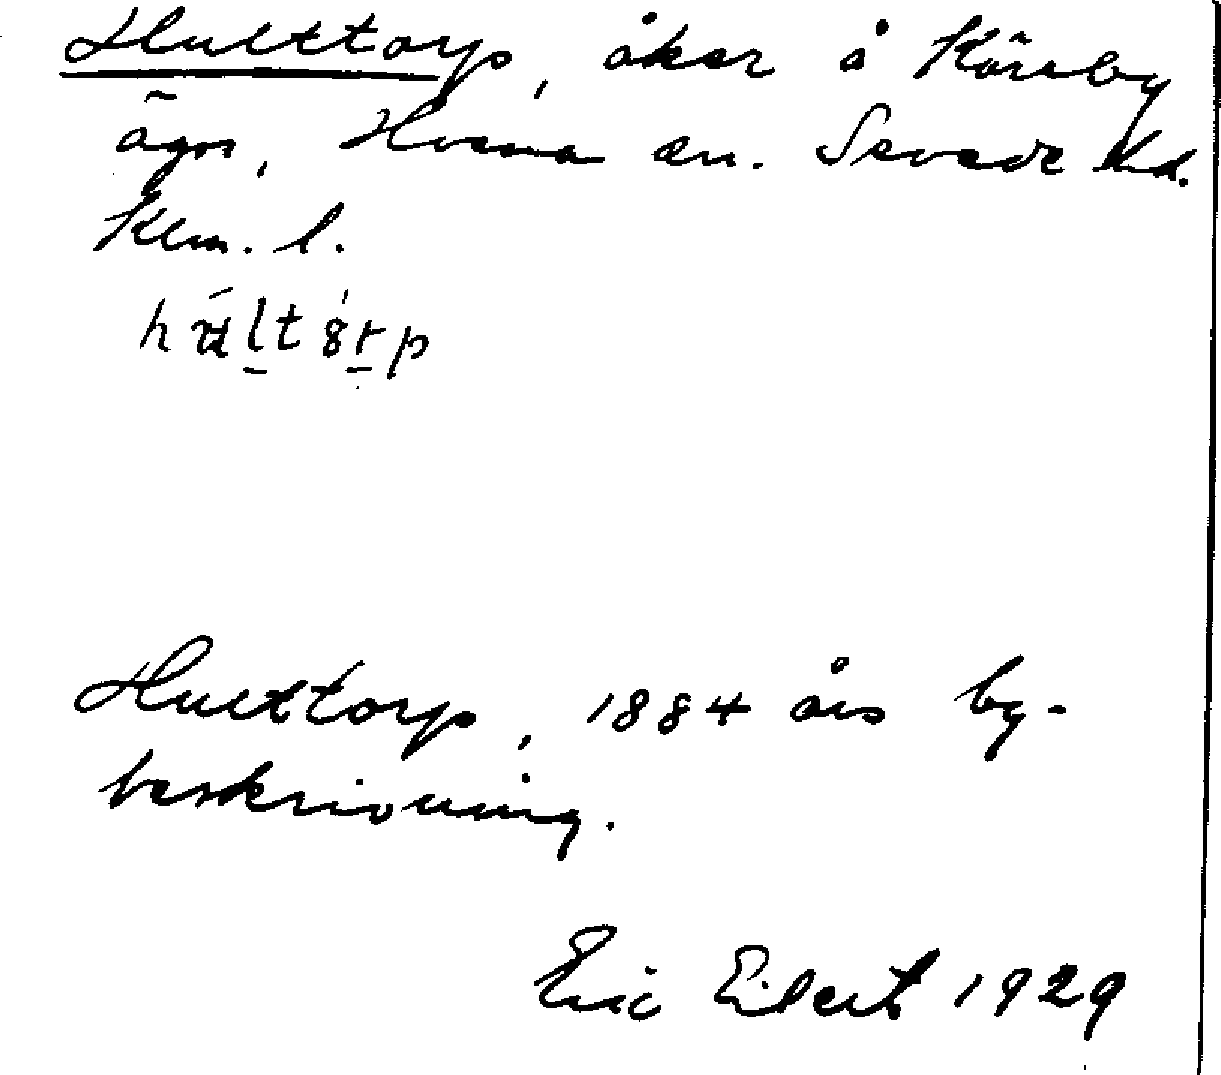 Hulttorp, åker å Kåreby
ägor, Hvena sn. Sevede hd.
Klm. l.
Hulttorp, 1884 års by-
beskrivning.
Eric Eilert 1929